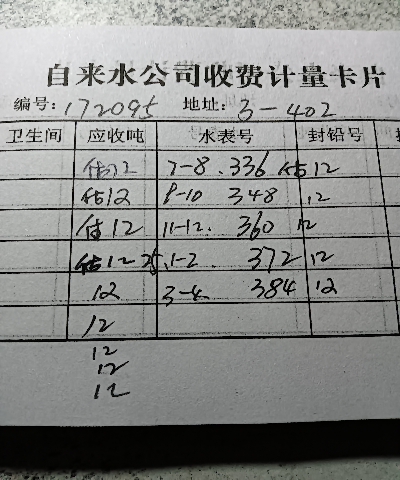 自来水公司收费计量卡片
编号: 172095 地址: 3-402
卫生间 应收吨 水表号 封铅号
估12 7-8 . 336 估12
估12 8-10 348 12
估12 11-12. 360 12
估12 1-2 . 372 12
12 3-4 384 12
12
12
12
12